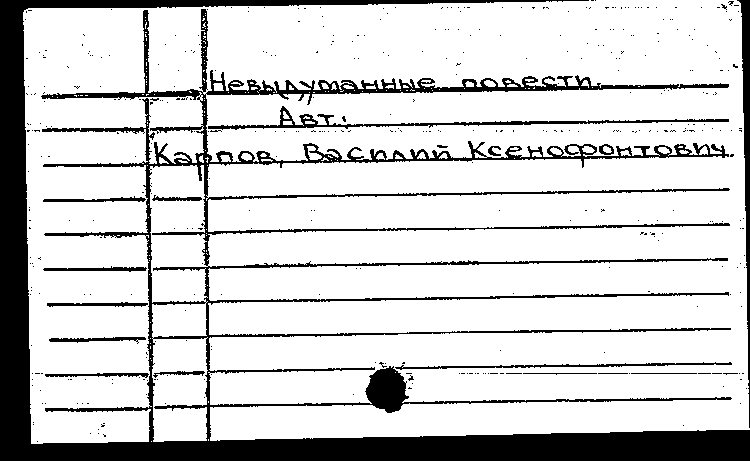 Невыдуманные повести.
Авт.:
Карпов, Василий Ксенофонтович